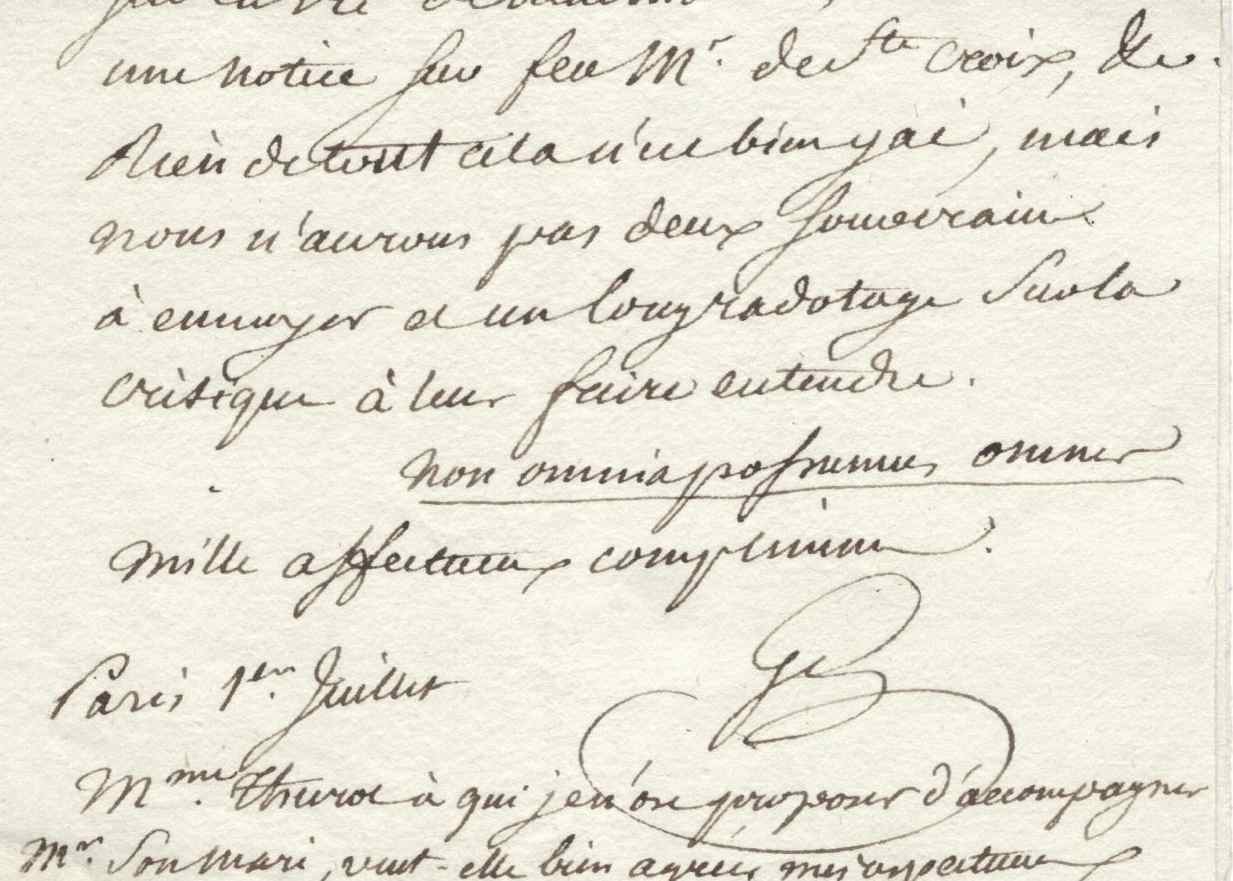 une notice sur feu Mr. de Ste croix, &c.
Rien de tout cela n'est bien gai, mais
nous n'aurons pas deux souverains
à ennuyer et un long radotage sur la
critique à leur faire entendre.
non omnia possumus omnes
Mille affectueux complimens.
Paris 1er. Juillet
Mme. Thurot à qui je n'ose proposer d'accompagner
Mr. son mari, veut-elle bien agréer mes respectueux